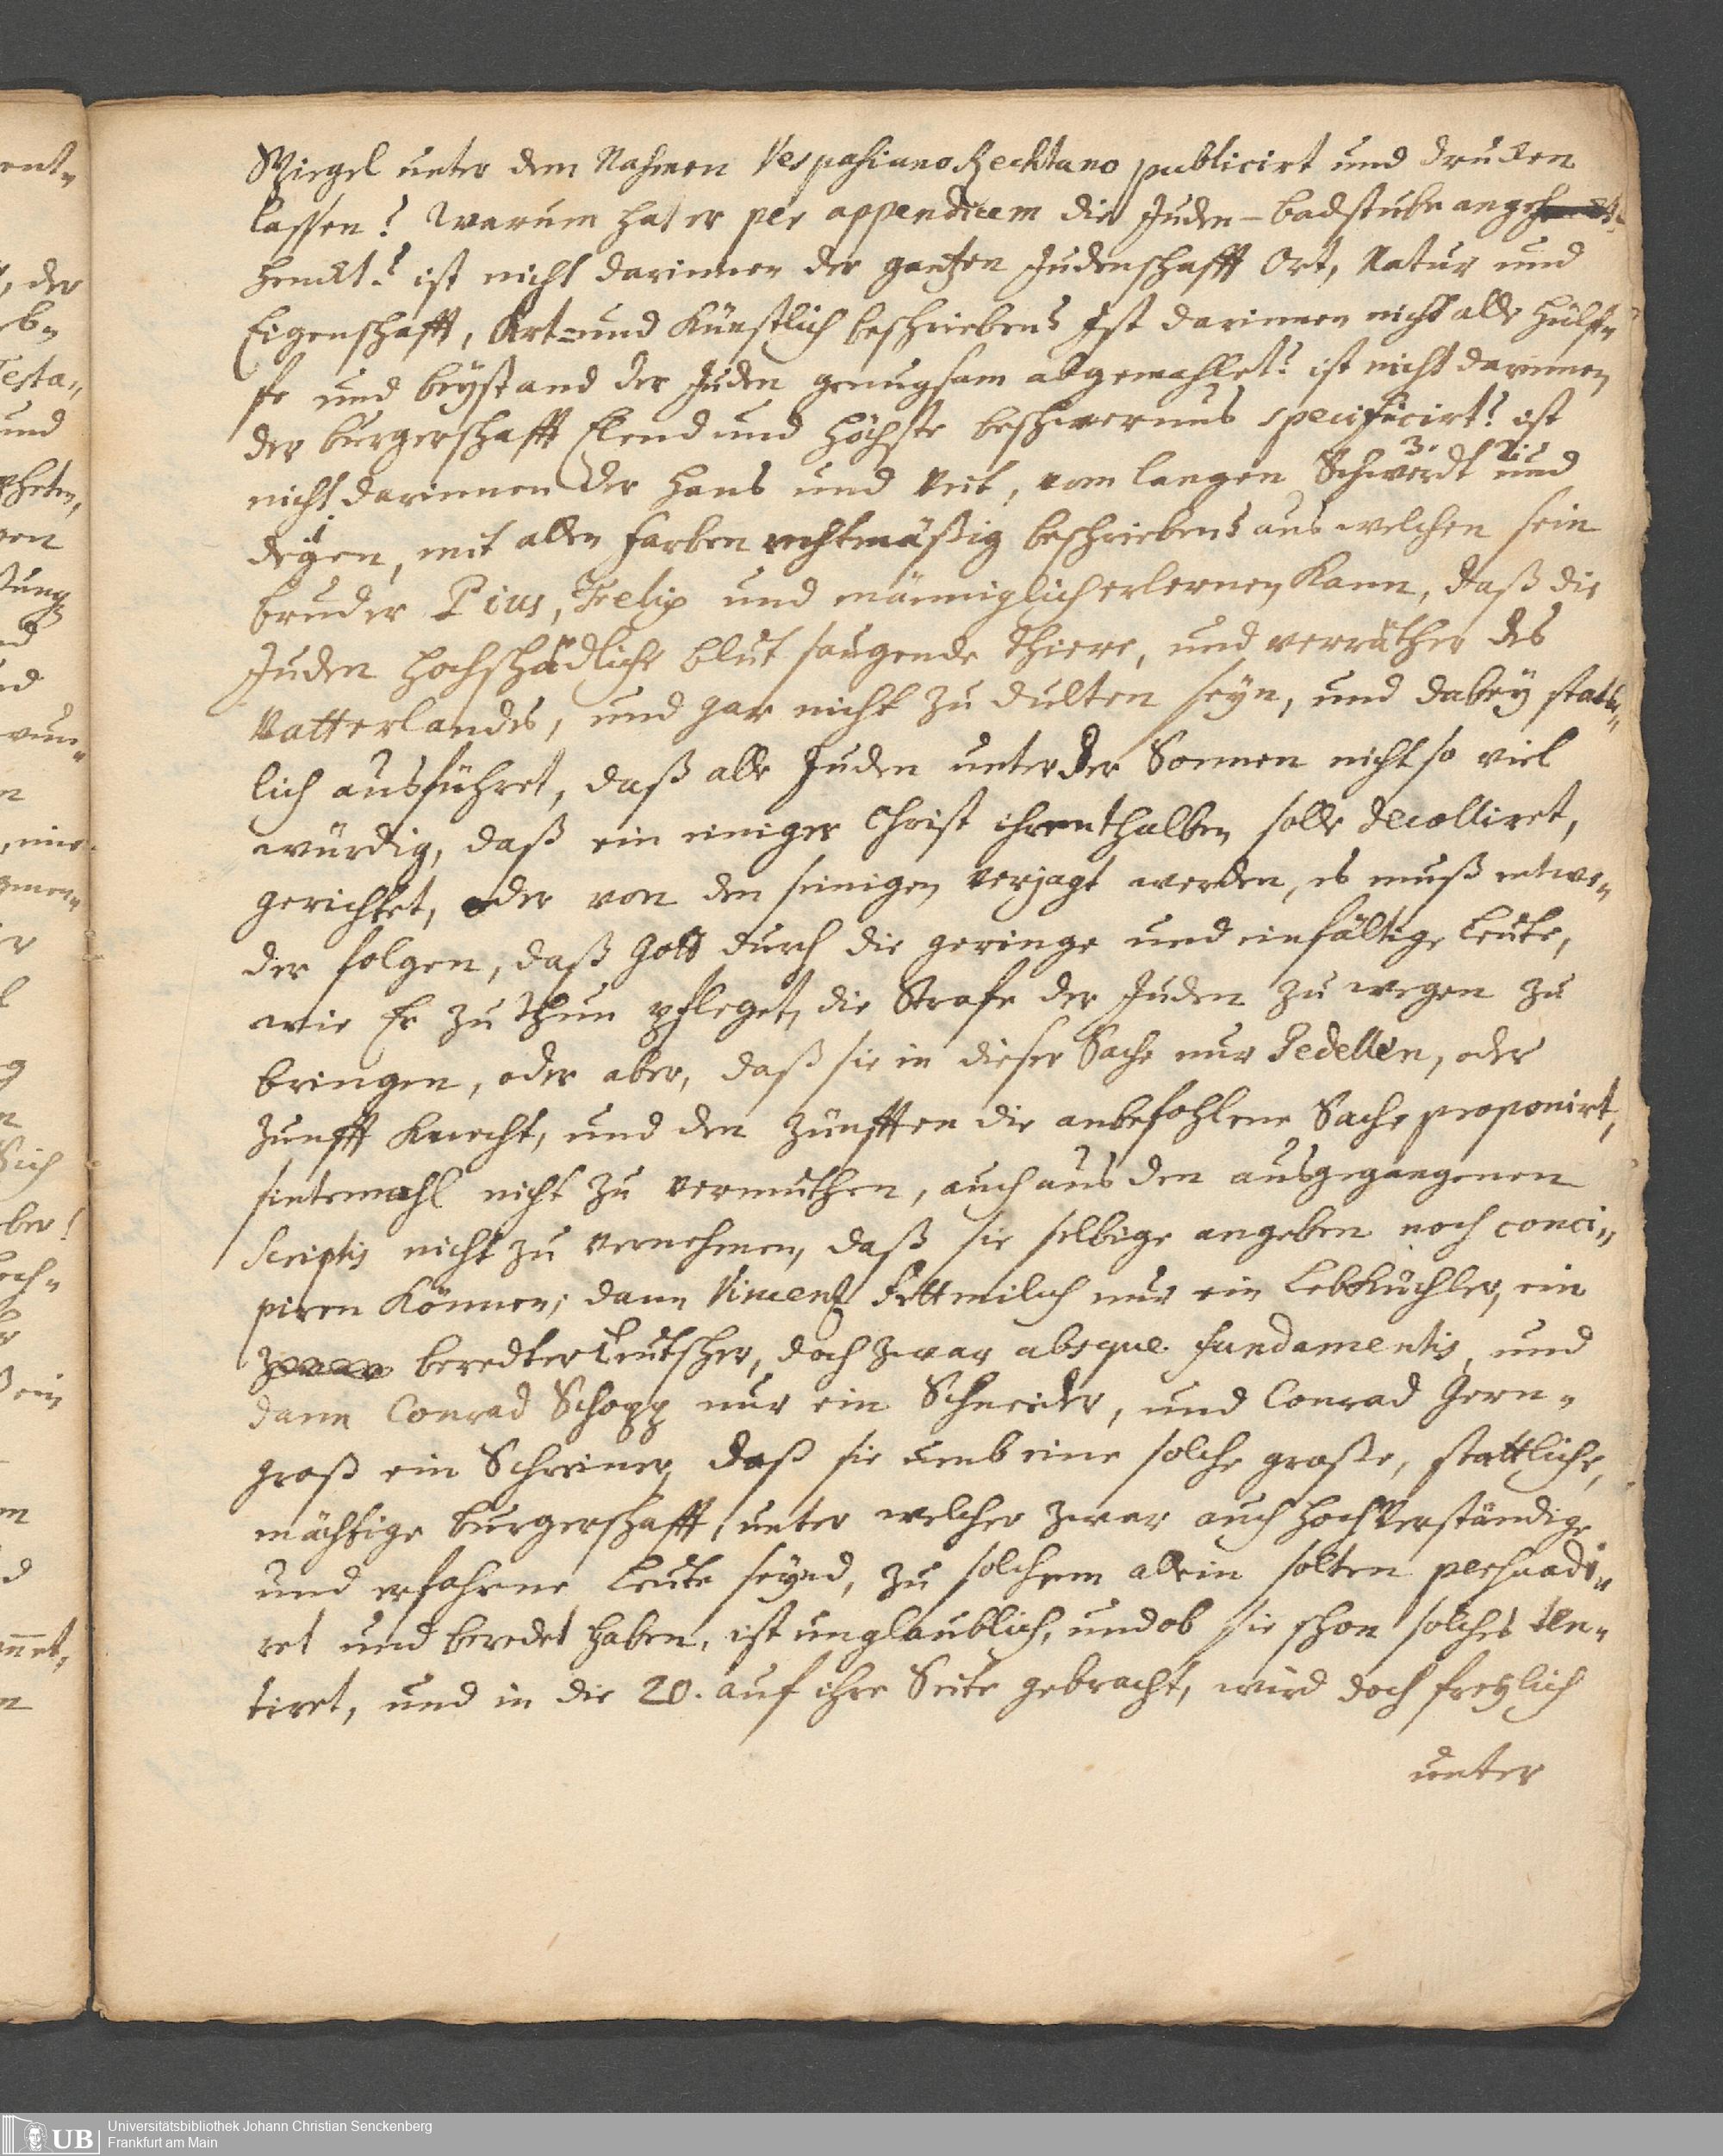 Spiegel unter dem Nahmen Vespasiano Rechtano publicirt und drucken
lassen? Warum hat er per appendicem die Juden-badstube angeh
henckt? ist nicht darinnen der gantzen Judenschafft Ort, Natur und
Eigenschafft, Art- und Künstlich beschrieben? Ist darinnen nicht alle Hülf„
fe und beystand der Juden genugsam abgemahlet? ist nicht darinnen
der burgerschafft Elend und höchste beschwernus specificirt? ist
nicht darinnen der Hans und Veit, vom langen Schwerdt und
degen, mit allen farben rechtmäßig beschrieben? aus welchen sein
bruder Pius, Felix und männiglich erlernen Kann, daß die
Juden hochschädliche blut saugende thiere, und verräther des
Vatterlandes, und gar nicht zu dulten seyn, und dabey statt„
lich ausführet, daß alle Juden unter der Sonnen nicht so viel
würdig, daß ein einiger Christ ihrenthalben solle decolliret,
gerichtet, oder von den seinigen verjagt werden, es muß entwe„
der folgen, daß Gott durch die geringe und einfältige Leute,
wie Er zu thun pfleget, die Strafe der Juden zu wegen zu
bringen, oder aber, daß sie in dieser Sache nur Pedellen, oder
Zunfft Knecht, und den Zünfften die anbefohlene Sache proponirt,
sintemahl nicht zu vermuthen, auch aus den ausgegangenen
Scriptis nicht zu vernehmen, daß sie selbige angeben noch conci„
piren Können; dann Vincentz Fettmilch nur ein Lebküchler, ein
zwar beredter Teutscher, doch zwar absque fundamentis, und
dann Conrad Schopp nur ein Schneider, und Conrad Gern„
groß ein Schreiner, daß sie umb eine solche große, stattliche,
mächtige burgerschafft, unter welcher zwar auch hochverständige
und erfahrne Leute seynd, zu solchem allein solten persuadi„
ret und beredet haben, ist unglaublich, und ob sie schon solches ten„
tiret, und in die 20. auf ihre Seite gebracht, wird doch freylich
unter
Universitätsbibliothek Johann Christian Senckenberg
Frankfurt am Main
UB